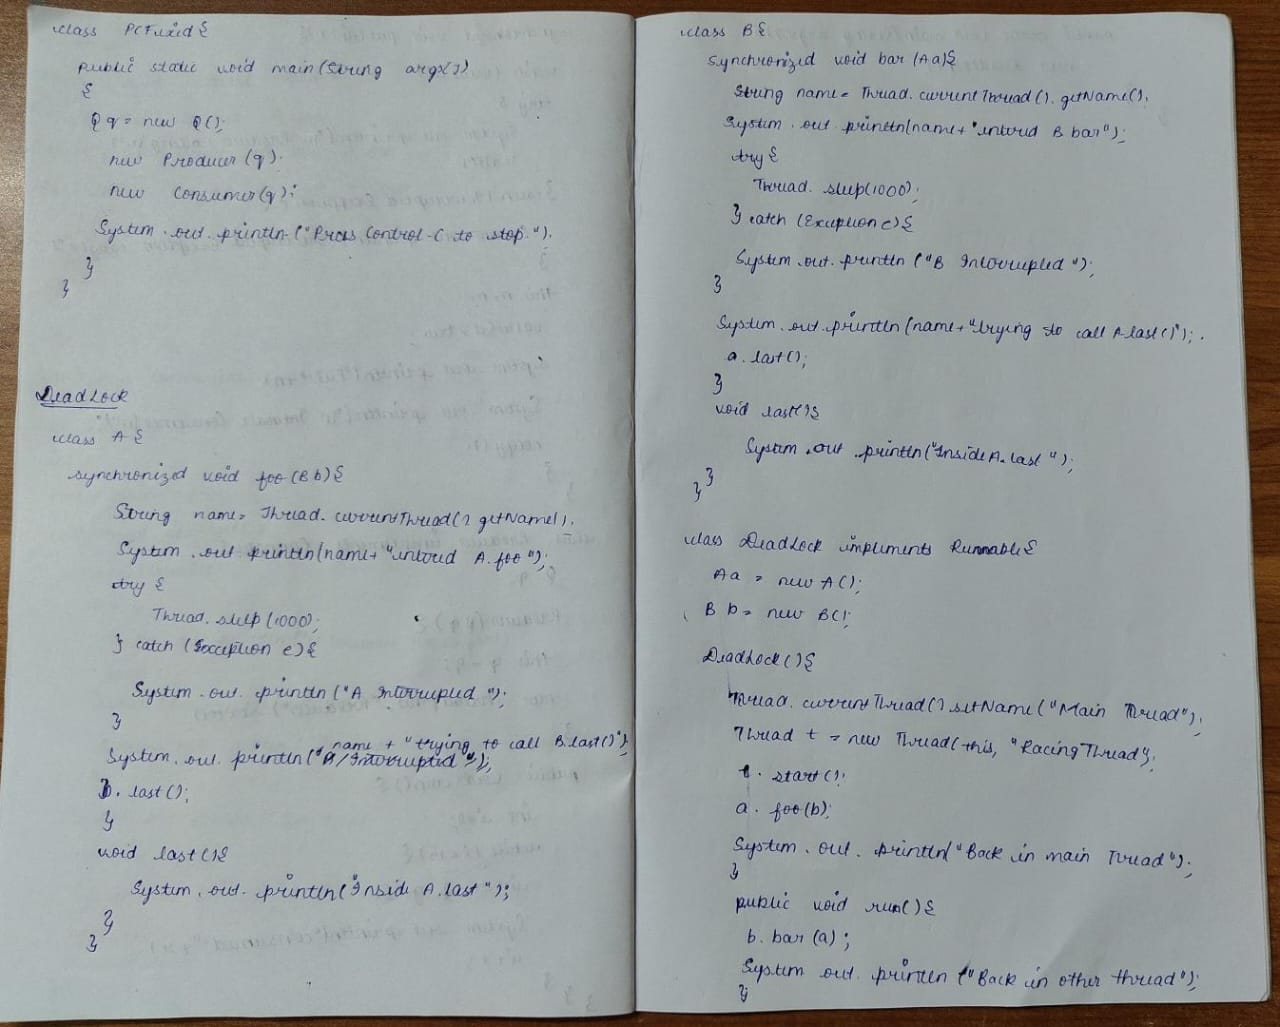 class PCFixed {
public static void main(String args[])
{
Q q = new Q();
new Producer (q);
new Consumer(q);
System.out.println ("Press Control-C to stop.");
}
}
DeadLock
class A {
synchronized void foo (B b) {
String name = Thread.currentThread().getName();
System.out.println(name+ "entered A.foo");
try {
Thread.sleep(1000);
} catch (Exception e) {
System.out.println ("A Interrupted");
}
name + "trying to call B.last()");
System.out.println("B Interrupted");
b.last();
}
void last() {
System.out.println("Inside A.last");
}
}
class B {
synchronized void bar (A a) {
String name = Thread.currentThread().getName();
System.out.println(name+ "entered B bar");
try {
Thread.sleep(1000);
} catch (Exception e) {
System.out.println ("B Interrupted");
}
System.out.println(name+"trying to call A.last()");
a.last();
}
void last() {
System.out.println("Inside A.last");
}
}
class DeadLock implements Runnable {
A a = new A();
B b = new B();
DeadLock() {
Thread.currentThread().setName("Main Thread");
Thread t = new Thread(this, "Racing Thread");
t.start();
a.foo(b);
System.out.println("Back in main Thread");
}
public void run() {
b.bar(a);
System out.println ("Back in other thread");
}